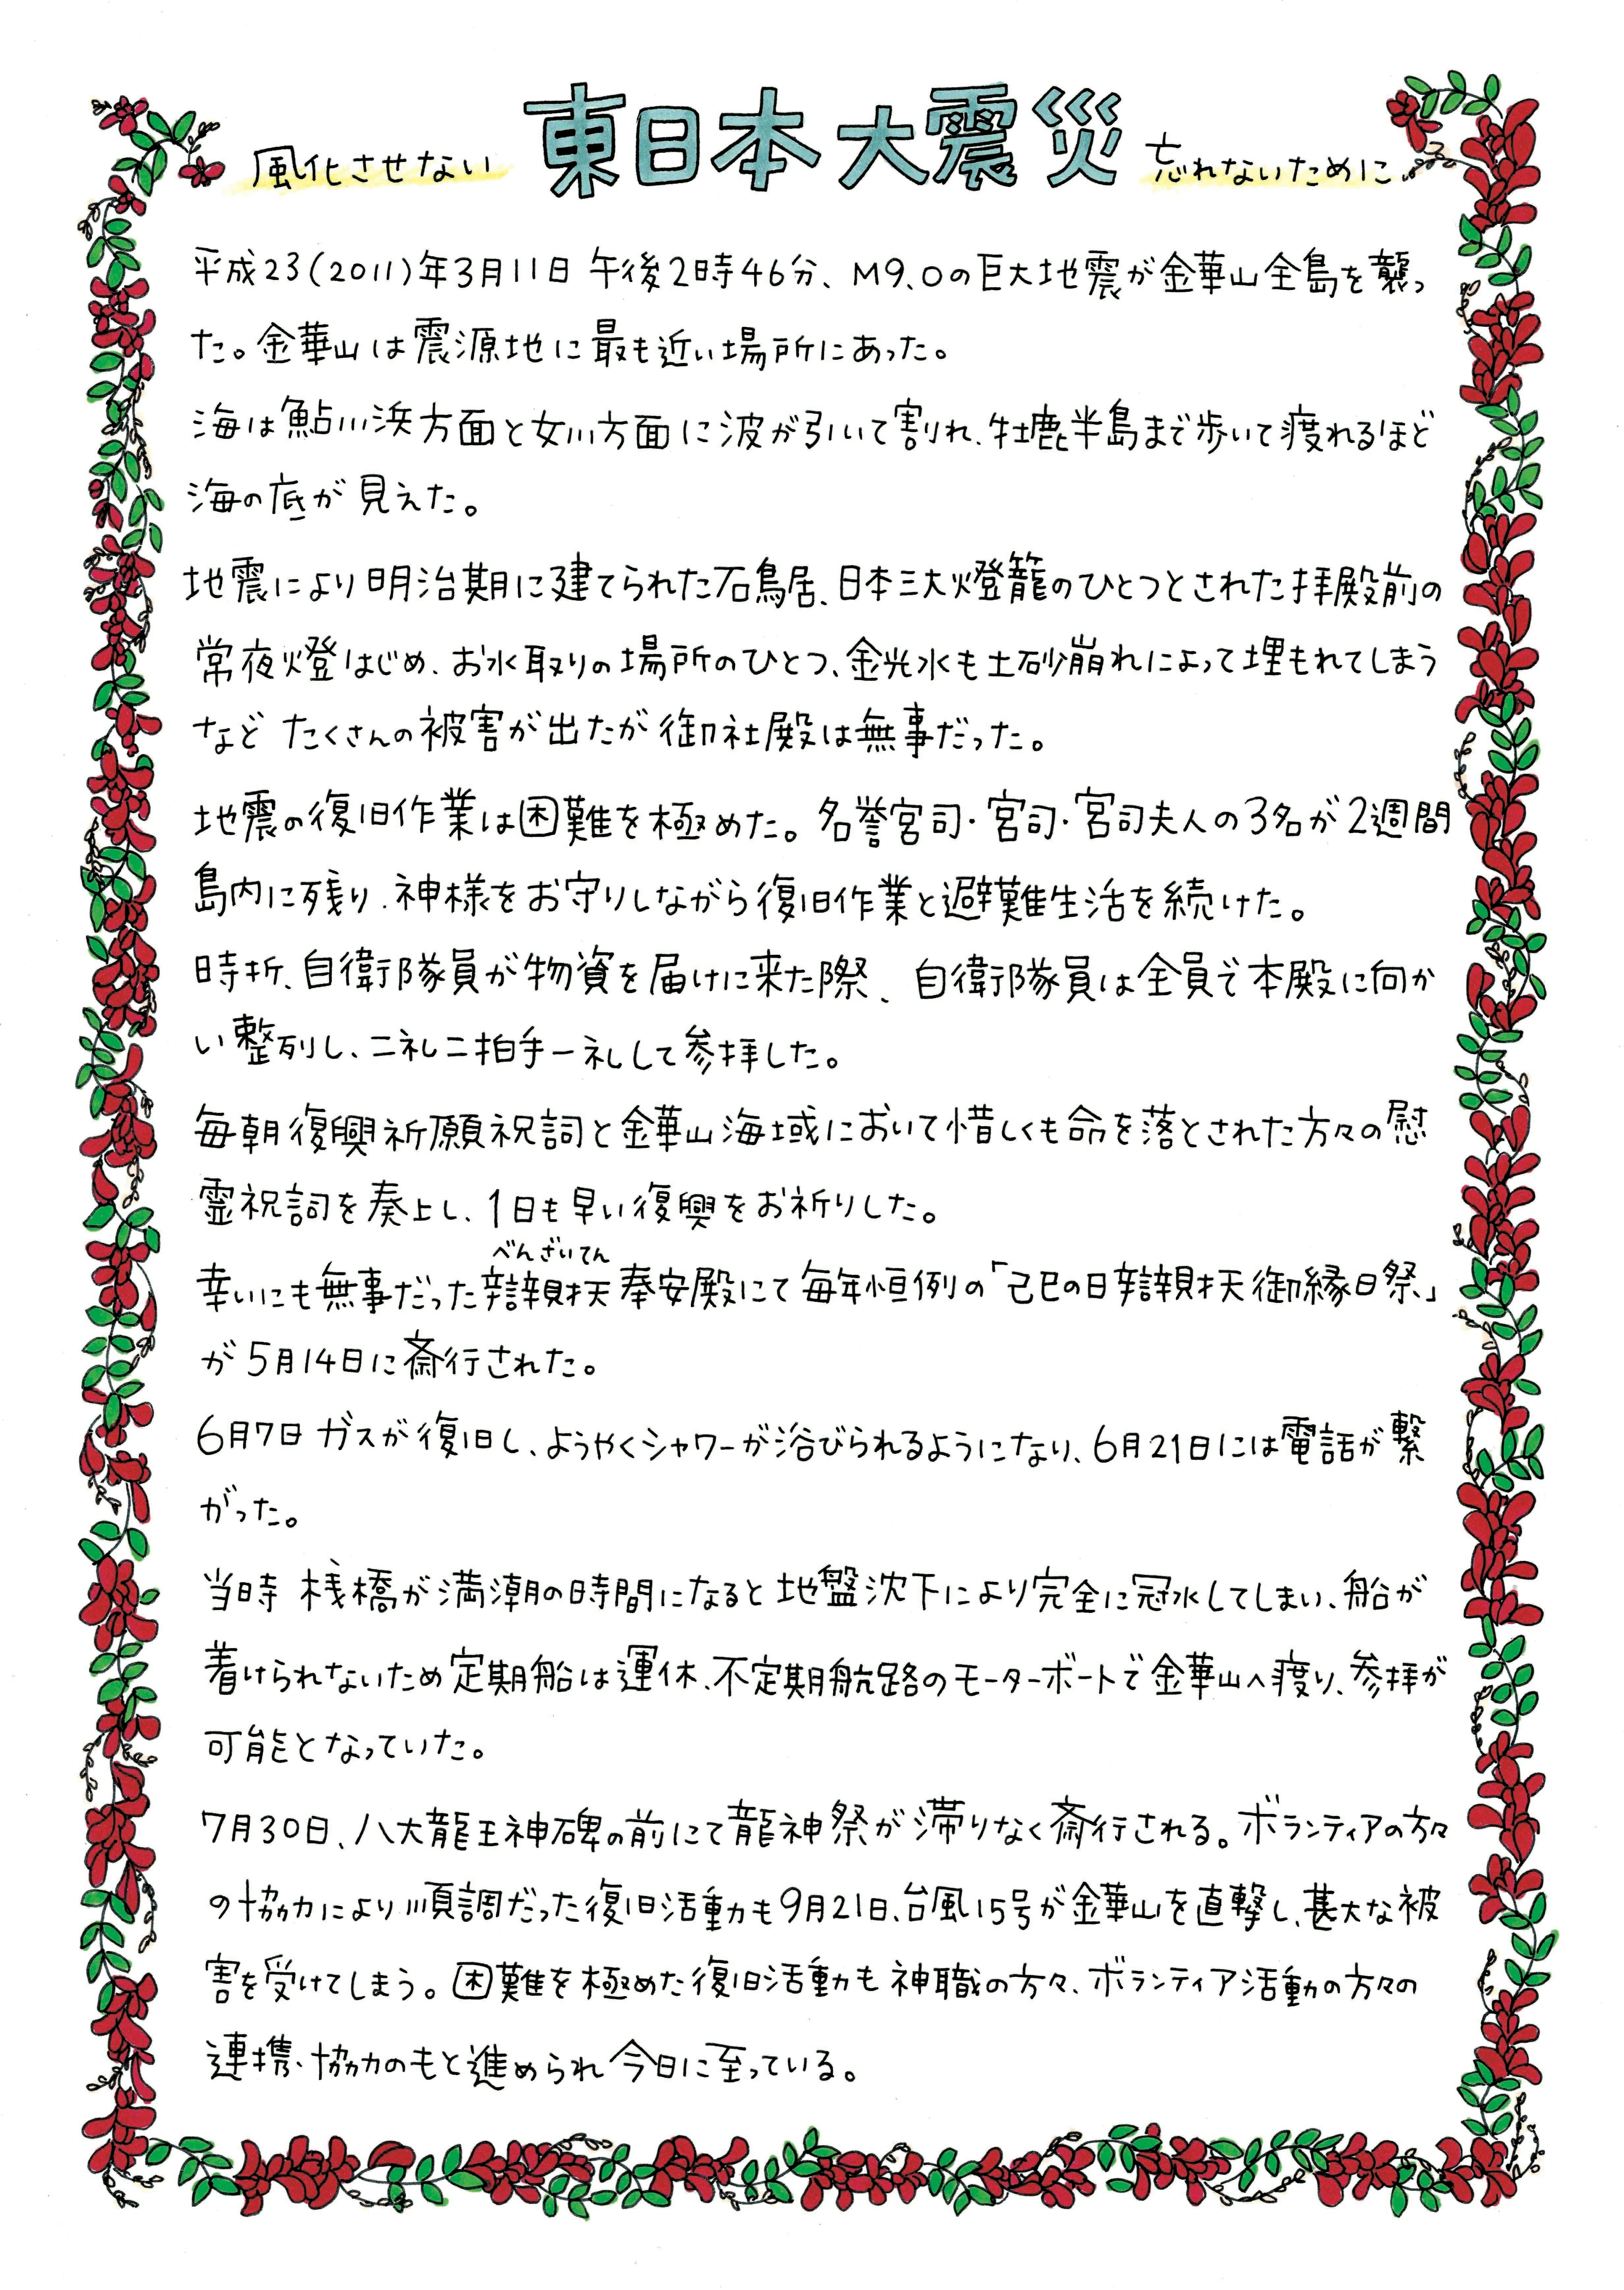 風化させない 東日本大震災 忘れないために
平成23(2011)年3月11日 午後2時46分、M9.0の巨大地震が金華山全島を襲っ
た。金華山は震源地に最も近い場所にあった。
海は鮎川浜方面と女川方面に波が引いて割れ、牡鹿半島まで歩いて渡れるほど
海の底が見えた。
地震により明治期に建てられた石鳥居、日本三大燈籠のひとつとされた拝殿前の
常夜燈はじめ、お水取りの場所のひとつ、金光水も土砂崩れによって埋もれてしまう
など たくさんの被害が出たが 御社殿は無事だった。
地震の復旧作業は困難を極めた。名誉宮司・宮司・宮司夫人の3名が2週間
島内に残り、神様をお守りしながら復旧作業と避難生活を続けた。
時折、自衛隊員が物資を届けに来た際、自衛隊員は全員で本殿に向か
い整列し、二礼二拍手一礼して参拝した。
毎朝復興祈願祝詞と金華山海域において惜しくも命を落とされた方々の慰
霊祝詞を奏上し、1日も早い復興をお祈りした。
べんざいてん
幸いにも無事だった辯財天奉安殿にて毎年恒例の「己巳の日辯財天御縁日祭」
が5月14日に斎行された。
6月7日 ガスが復旧し、ようやくシャワーが浴びられるようになり、6月21日には電話が繋
がった。
当時 桟橋が満潮の時間になると地盤沈下により完全に冠水してしまい、船が
着けられないため定期船は運休、不定期航路のモーターボートで金華山へ渡り、参拝が
可能となっていた。
7月30日、八大龍王神碑の前にて龍神祭が滞りなく斎行される。ボランティアの方々
の協力により順調だった復旧活動も9月21日、台風15号が金華山を直撃し、甚大な被
害を受けてしまう。困難を極めた復旧活動も神職の方々、ボランティア活動の方々の
連携、協力のもと進められ今日に至っている。